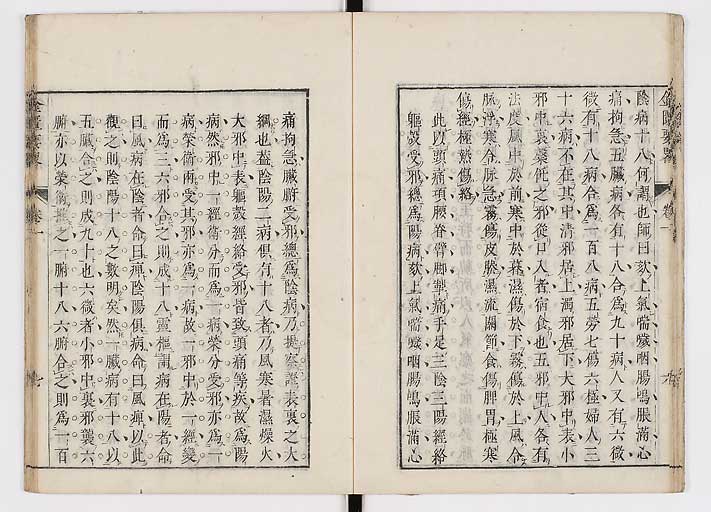 陰病十八何謂也師曰欬上氣喘噦咽腸鳴脹滿心
痛拘急五臟病各有十八合爲九十病人又有六微
微有十八病合爲一百八病五勞七傷六極婦人三
十六病不在其中清邪居上濁邪居下大邪中表小
邪中裏䅽飥之邪從口入者宿食也五邪中人各有
法度風中於前寒中於暮濕傷於下霧傷於上風令
脉浮寒令脉急霧傷皮腠濕流關節食傷脾胃極寒
傷經極熱傷絡
此以頭痛項腰脊臂脚掣痛手足三陰三陽經絡
軀殼受邪總爲陽病欬上氣喘噦咽腸鳴脹滿心
痛拘急臟腑受邪總爲陰病乃提察證表裏之大
綱也蓋陰陽二病俱有十八者乃風寒暑濕燥火
大邪中表軀殼經絡受邪皆致頭痛等疾故爲陽
病然邪中一經衛分而爲一病榮分受邪亦爲一
病榮衛兩受其邪亦爲一病故一邪中於一經變
而爲三六邪合之則成十八靈樞謂病在陽者命
曰風病在陰者命曰痺陰陽俱病命曰風痺以此
觀之則陰陽十八之數明矣然一臟病有十八以
五臟合之則成九十也六微者小邪中裏邪襲六
腑亦以榮衛推之一腑十八六腑合之則爲一百